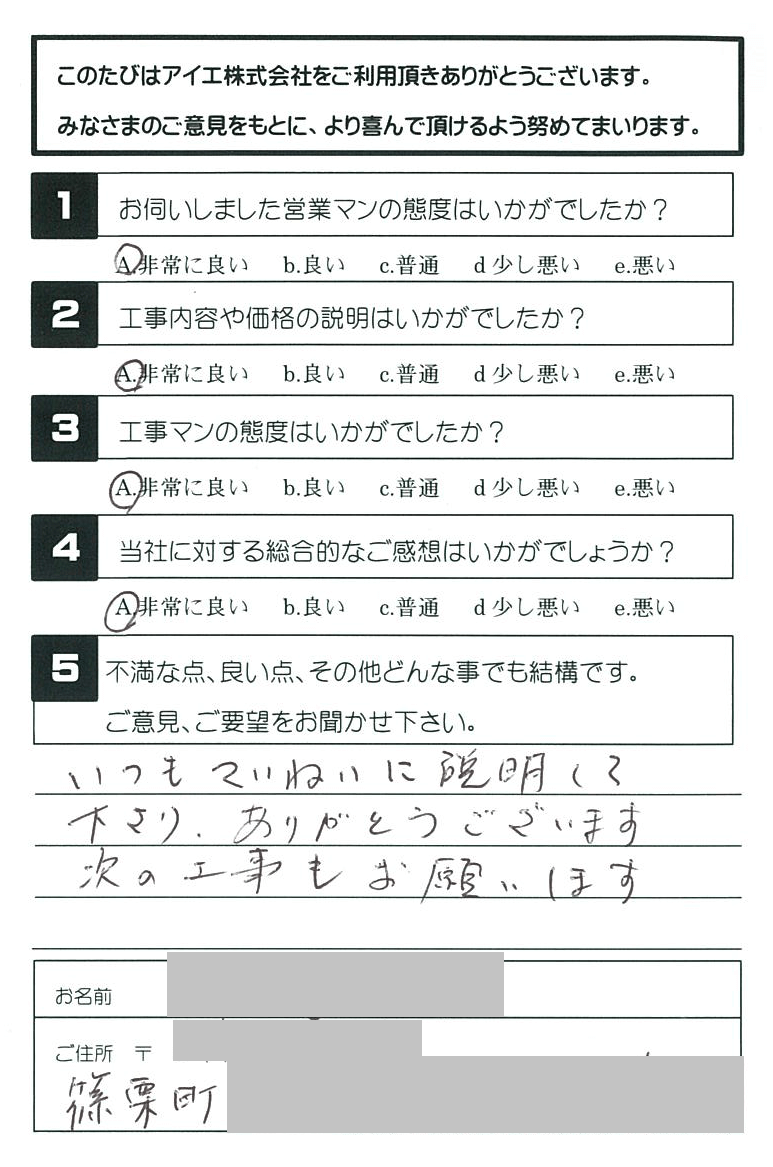 このたびはアイエ株式会社をご利用頂きありがとうございます。
みなさまのご意見をもとに、より喜んで頂けるよう努めてまいります。
1 お伺いしました営業マンの態度はいかがでしたか?
A.非常に良い b.良い c.普通 d 少し悪い e.悪い
2 工事内容や価格の説明はいかがでしたか?
A.非常に良い b.良い c.普通 d 少し悪い e.悪い
3 工事マンの態度はいかがでしたか?
A.非常に良い b.良い c.普通 d 少し悪い e.悪い
4 当社に対する総合的なご感想はいかがでしょうか?
A.非常に良い b.良い c.普通 d 少し悪い e.悪い
5 不満な点、良い点、その他どんな事でも結構です。
ご意見、ご要望をお聞かせ下さい。
いつもていねいに説明して
下さり、ありがとうございます
次の工事もお願いします
お名前
ご住所 〒
篠栗町